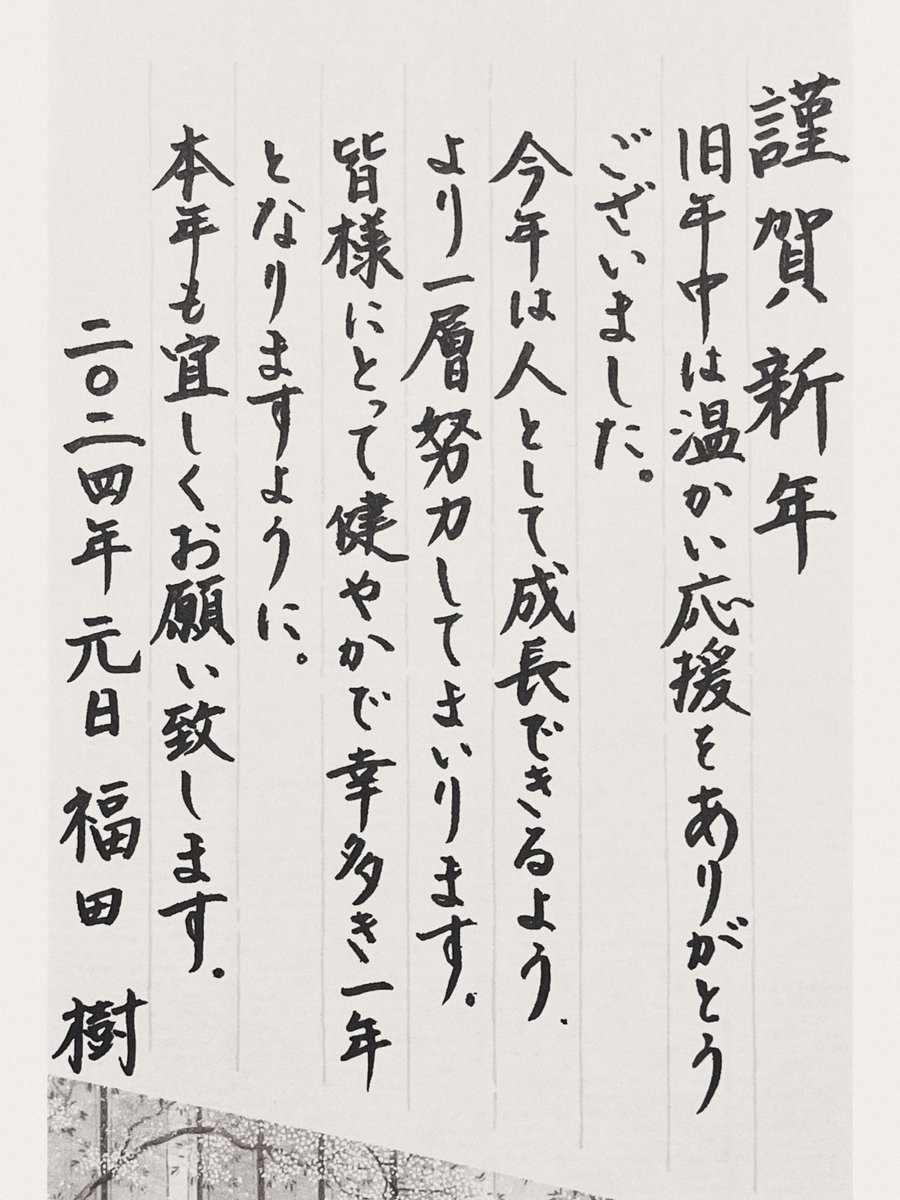 謹賀新年
旧年中は温かい応援をありがとう
ございました。
今年は人として成長できるよう、
より一層努力してまいります。
皆様にとって健やかで幸多き一年
となりますように。
本年も宜しくお願い致します。
二〇二四年 元日 福田 樹